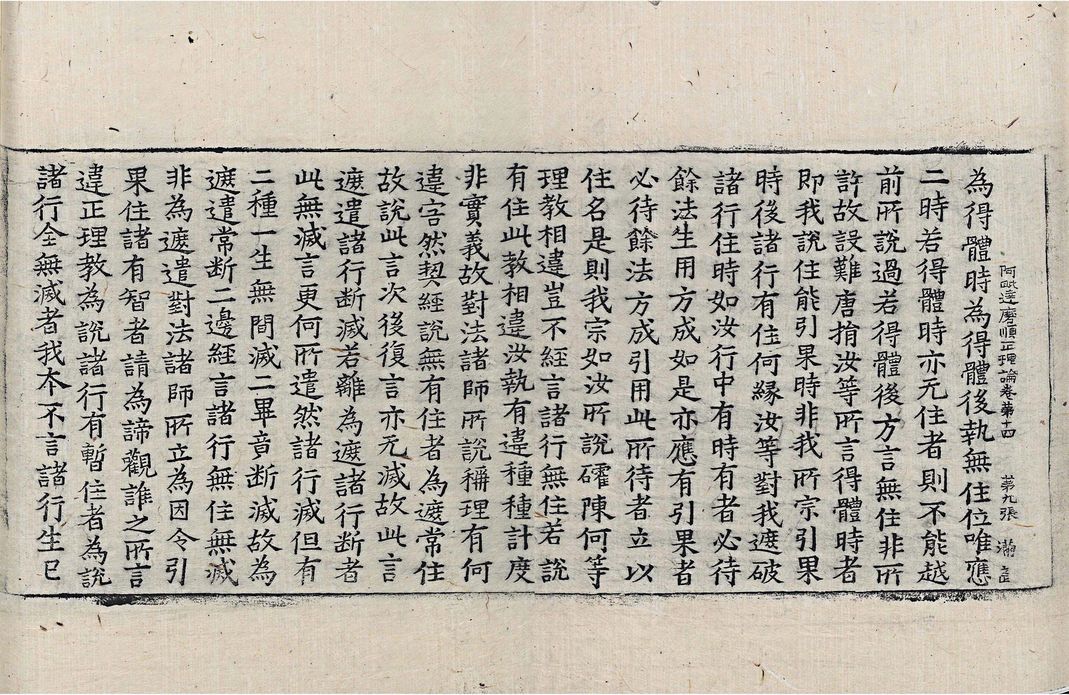 為得體時為得體後執無住位唯應
阿毗達磨順正理論卷第十四 第九張 滿
二時若得體時亦无住者則不能越
前所說過若得體後方言無住非所
許故設難唐捐汝等所言得體時者
即我說住能引果時非我所宗引果
時後諸行有住何緣汝等對我遮破
諸行住時如汝行中有時有者必待
餘法生用方成如是亦應有引果者
必待餘法方成引用此所待者立以
住名是則我宗如汝所說確陳何等
理教相違豈不經言諸行無住若說
有住此教相違汝執有違種種計度
非實義故對法諸師所說稱理有何
違害然契經說無有住者為遮常住
故說此言次後復言亦无滅故此言
遮遣諸行断滅若離為遮諸行断者
此無滅言更何所遣然諸行滅但有
二種一生無間滅二畢竟断滅故為
遮遣常断二邊經言諸行無住無滅
非為遮遣對法諸師所立為因令引
果住諸有智者請為諦觀誰之所言
違正理教為說諸行有暫住者為說
諸行全無滅者我本不言諸行生已